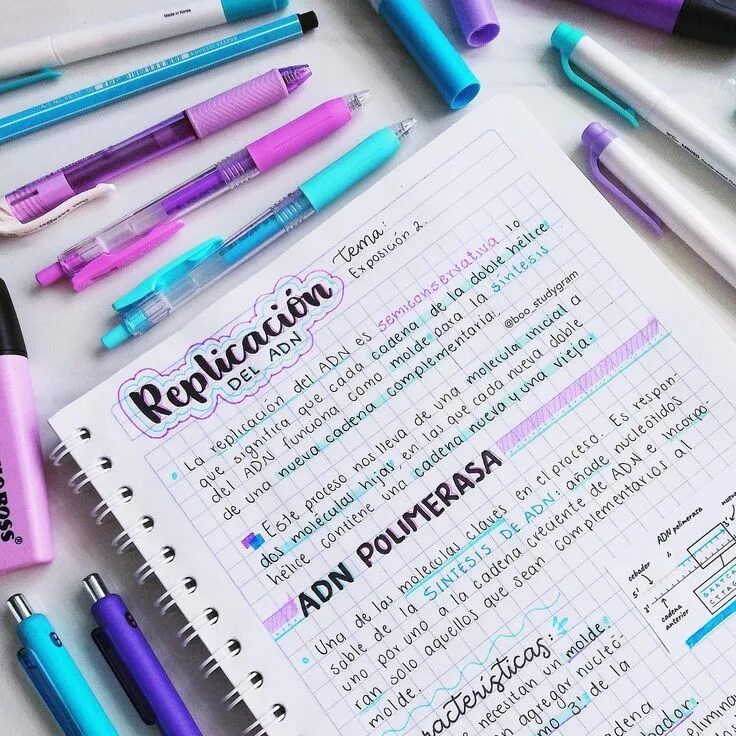 Made in Korea
tema:
Exposición 2.
Replicación
DEL ADN
La replicación del ADN es semiconservativa lo
que significa que cada cadena de la doble hélice
del ADN funciona como molde para la síntesis
de una nueva cadena complementaria.
@boo_studygram
Este proceso nos lleva de una molécula inicial a
dos moléculas hijas, en las que cada nueva doble
hélice contiene una cadena nueva y una vieja.
ADN POLIMERASA
Una de las moléculas claves en el proceso. Es respon-
sable de la SINTESIS DE ADN: añade nucleótidos
uno por uno a la cadena creciente de ADN e incorpo-
ran solo aquellos que sean complementarios al
molde.
características:
necesitan un molde
agregar nucleó-
3' de la
cadena
ADN polimerasa
cebador
3'
5'
cadena
anterior
BOSS